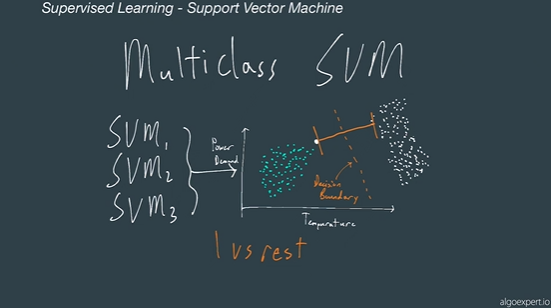 Supervised Learning - Support Vector Machine
Multiclass SVM
SVM1
SVM2
SVM3
Power
Demand
Decision
Boundary
Temperature
1 vs rest
algoexpert.io